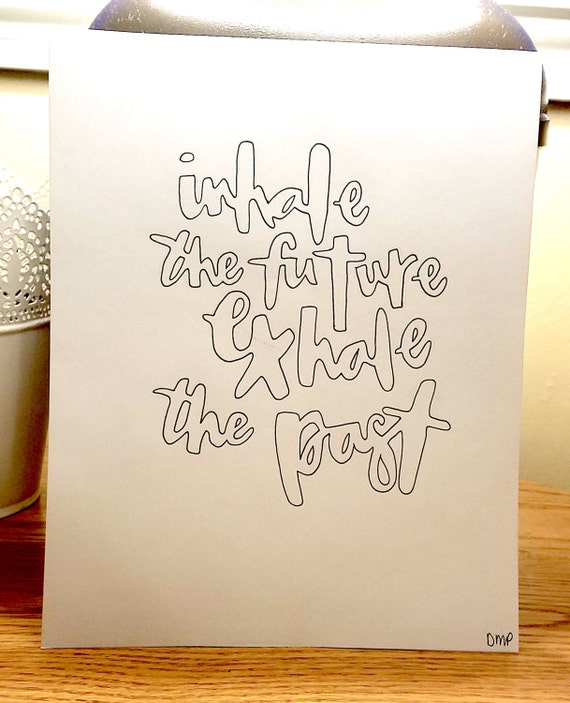 inhale
the future
exhale
the past
DMP